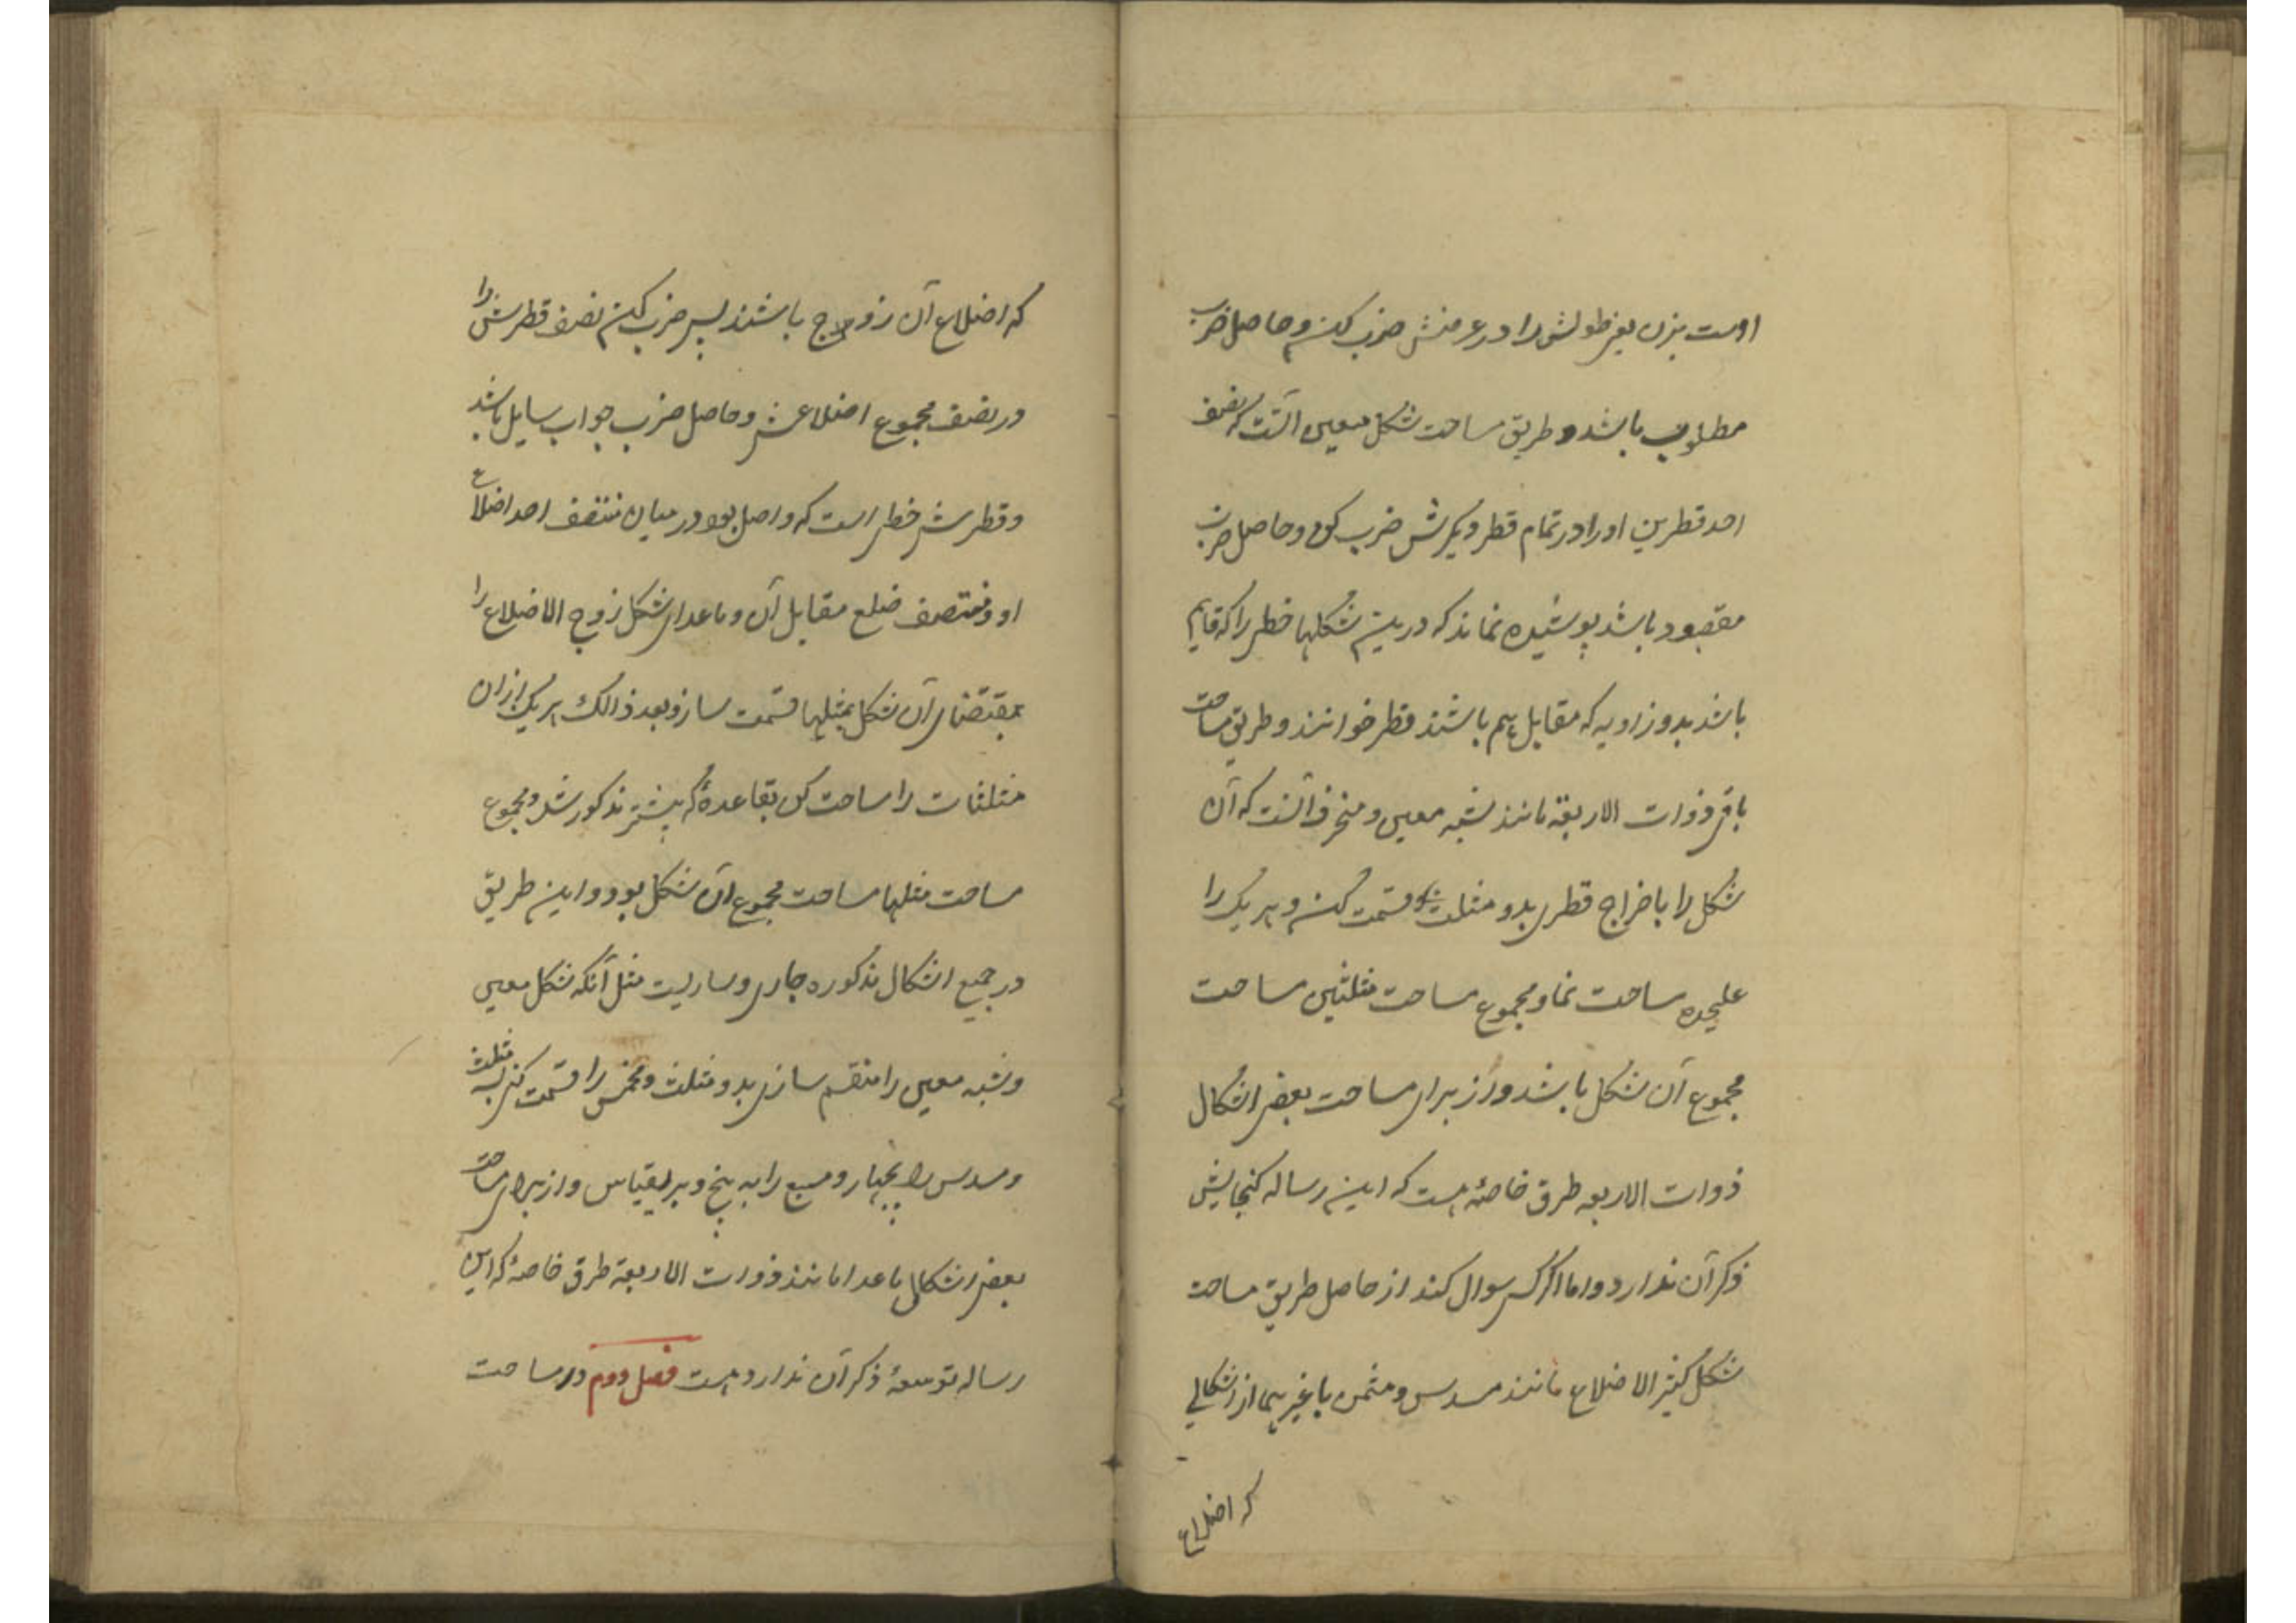 اوست بزن یعنی طولش را در عرضش ضرب کن و حاصل ضرب
مطلوب باشد و طریق مساحت شکل معین آنست که نصف
احد قطرین او را در تمام قطر دیگرش ضرب کن و حاصل ضرب
مقصود باشد پوشیده نماند که درین شکلها خطی را که قایم
باشد بدو زاویه که مقابل هم باشند قطر خوانند و طریق مساحت
باقی ذوات الاربعة مانند شبه معین و منحرف آنست که آن
شکل را باخراج قطری بدو مثلث قسمت کن و هر یک را
علیحده مساحت نما و مجموع مساحت مثلثین مساحت
مجموع آن شکل باشد و از برای مساحت بعضی اشکال
ذوات الاربعه طرق خاصه هست که این رساله کنجایش
ذکر آن ندارد و اما اگر کسی سوال کند از حاصل طریق مساحت
شکل کثیر الاضلاع مانند مسدس و مثمن یا غیر هما از اشکالی
که اضلاع
که اضلاع آن زوج باشند پس ضرب کن نصف قطرش را
در نصف مجموع اضلاعش و حاصل ضرب جواب سایل باشد
و قطرش خطی است که واصل بود در میان منتصف احد اضلاع
او و منتصف ضلع مقابل آن و ماعدای شکل زوج الاضلاع را
بمقتضای آن شکل بمثلها قسمت ساز و بعد ذالک هر یک ازان
مثلثات را مساحت کن بقاعدهٔ که پیشتر مذکور شد و مجموع
مساحت مثلها مساحت مجموع آن شکل بود و این طریق
در جمیع اشکال مذکوره جاری و ساریست مثل آنکه شکل معین
و شبه معین را منقسم سازی بدو مثلث و مخمس را قسمت کنی بسه مثلث
و مسدس را بچهار و مسبع را به پنج و برینقیاس و از برای مساحت
بعضی اشکال ماعدا مانند ذوات الاربعة طرق خاصهٔ که این
رساله توسعهٔ ذکر آن ندارد هست فصل دوم در مساحت